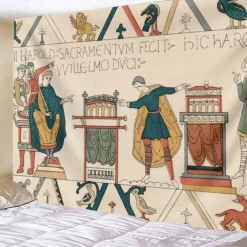 HAROLD : SACRAMENTVM FECIT : hIC hARO
VVILLELMO DVCI :